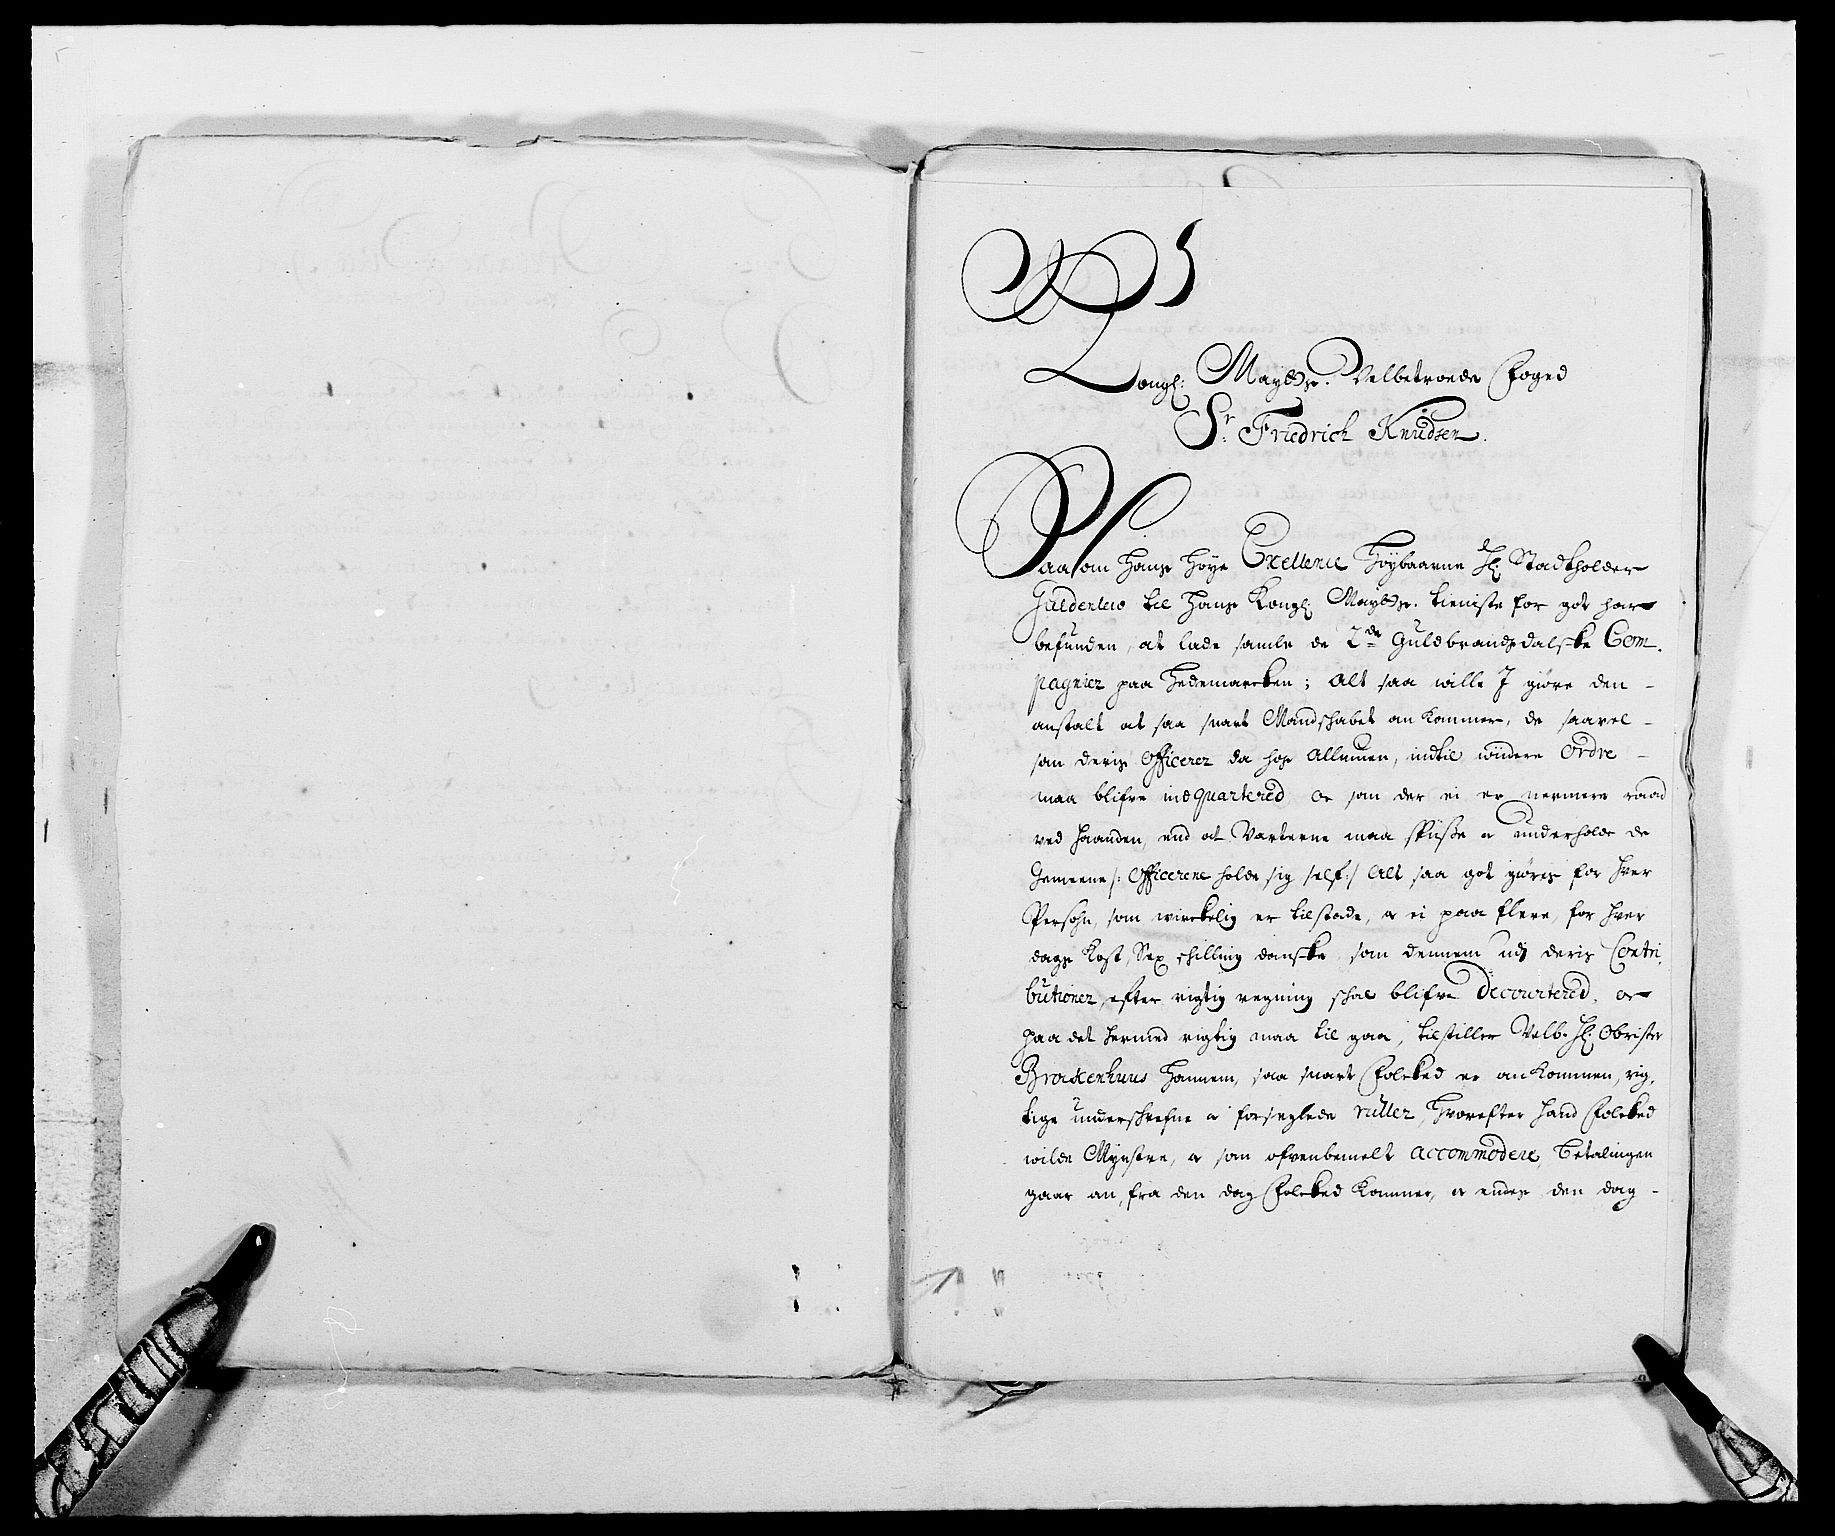 Kongl: Maytts: Velbetroede Foged
Sr: Friedrich Knudsen.
Saasom Hans Høye Exellence Høybaarne Hr Stadtholder
Guldenlew til Hans Kongl: Maytts: tieniste for got har
befunden, at lade samle de 2de Guldbrandsdalske Com,
pagnier paa Hedemarcken; Alt saa wille I giøre den -
anstalt at saa snart Mandschabet an kommer, de saavel -
som deris Officerer da hos Allmuen, indtil widere Ordre -
maa blifve indquartered, Oc som der ei er nermere raad
ved Haanden, end at Verterne maa spiisse oc underholde de
Gemeene /: Officerene holde sig self :/ Alt saa got giøris for hver
Persohn, som wirckelig er tilstæde, oc ei paa flere, for hver
dags Kost, Sex schilling danske, som dennem udj deris Contri,
butioner, efter rigtig regning schal blifve Decourtered, oc
paa det hermed rigtig maa til gaa, tilstiller Velb: Hr: Obrister
Brockenhuus Hannem, saa snart Folcked er an Kommen, rig,
tige underschrefne oc forseglede ruller, Hvorefter Hand Folcked
wilde Mynstre, oc som ofvenbemelt accommodere, Betalingen
gaar an, fra den dag Folcked Kommer, oc endes den dag -